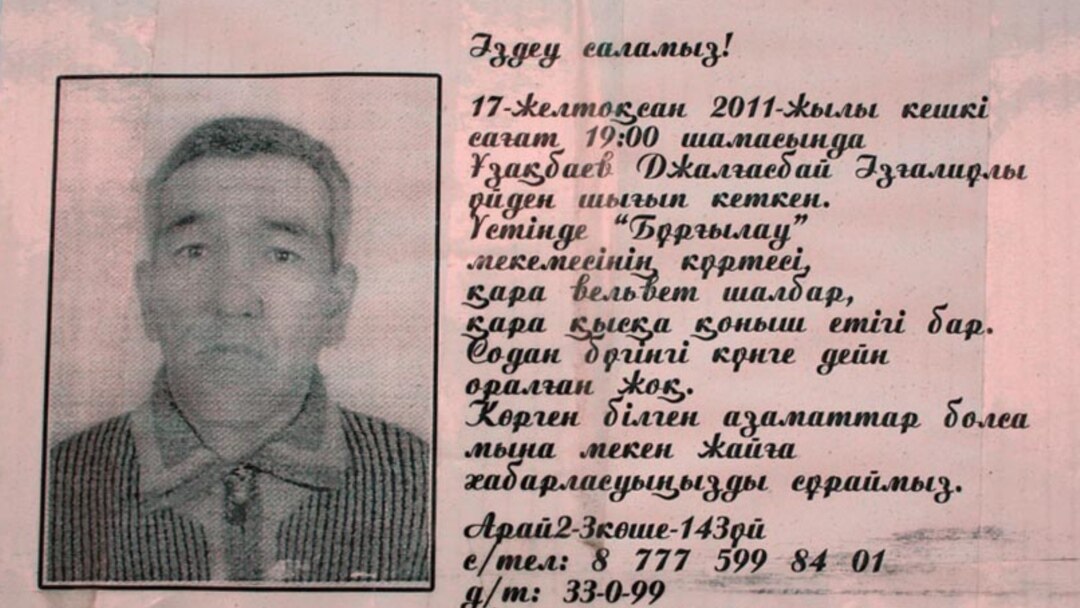 Іздеу саламыз!
17-желтоқсан 2011-жылы кешкі
сағат 19:00 шамасында
Ұзақбаев Джалғасбай Ізғалиұлы
үйден шығып кеткен.
Үстінде “Бұрғылау”
мекемесінің күртесі,
қара вельвет шалбар,
қара қысқа қоныш етігі бар.
Содан бүгінгі күнге дейн
оралған жоқ.
Көрген білген азаматтар болса
мына мекен жайға
хабарласуыңызды сұраймыз.
Арай2-3көше-143үй
с/тел: 8 777 599 84 01
д/т: 33-0-99